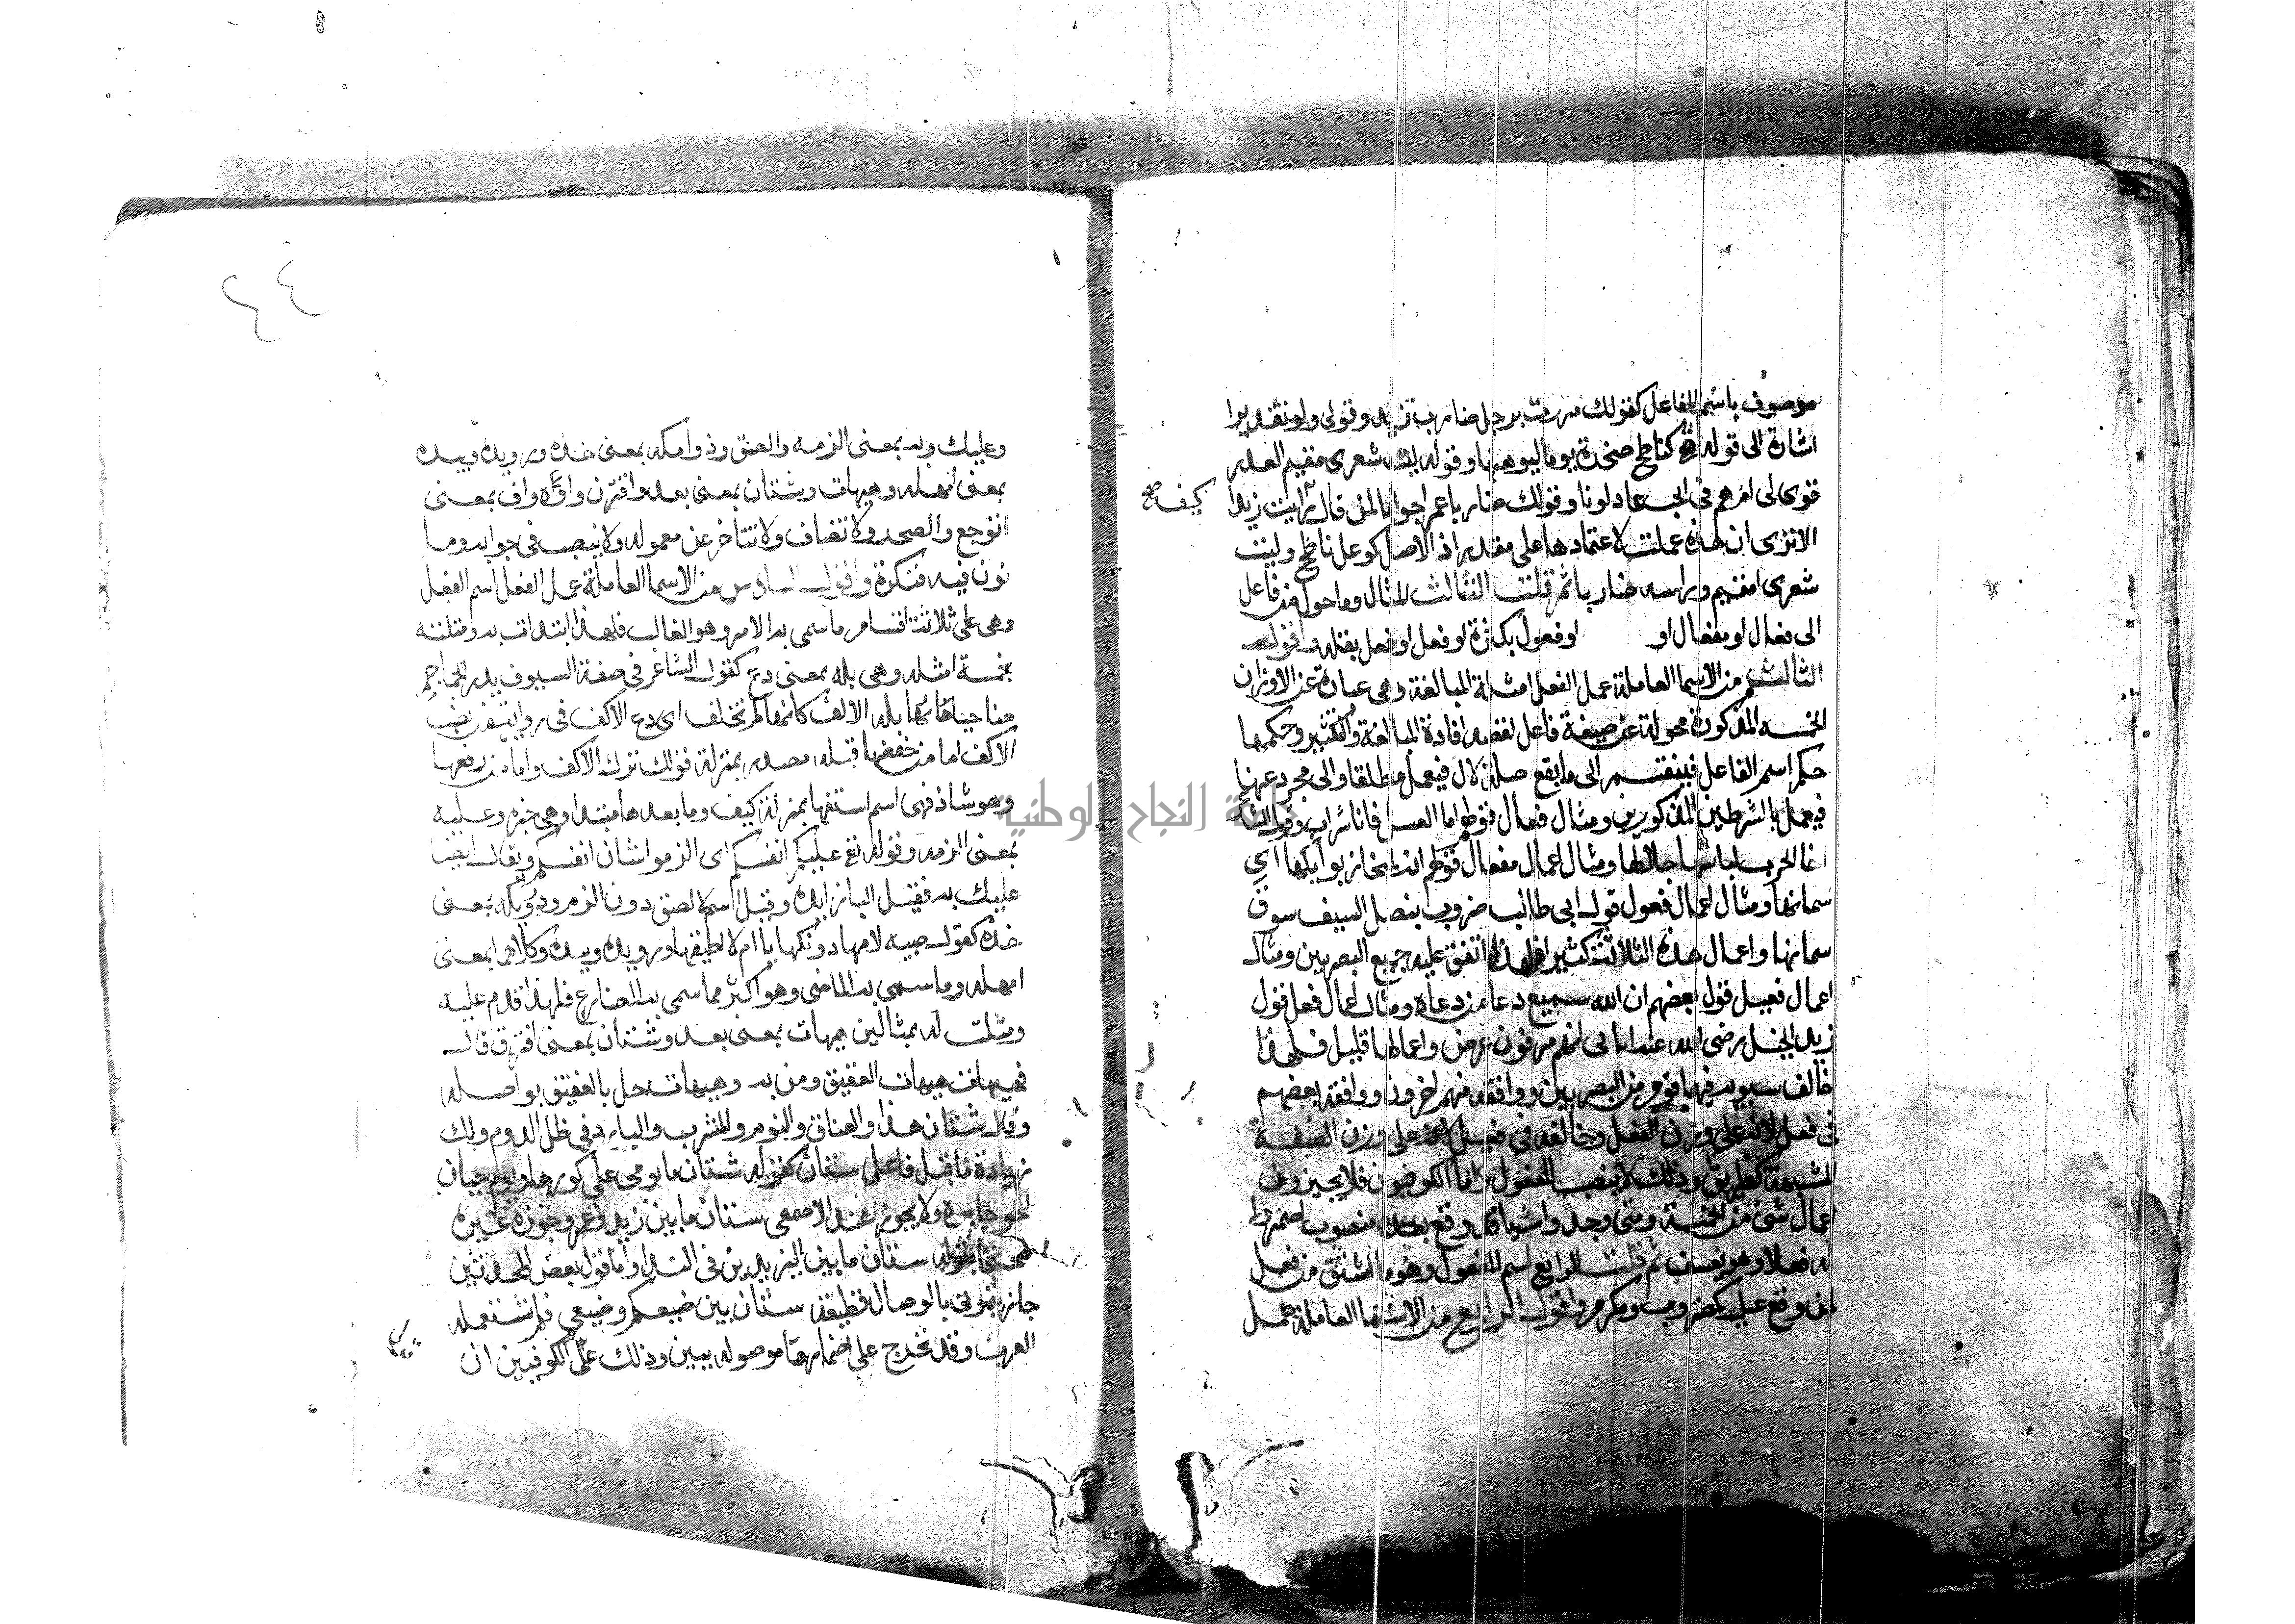 موصوف باسم الفاعل كقولك مررت برجل ضارب زيدا وقولى ولو تقديرا
اشارة الى قوله كناطح صخرة يوما ليوهنها وقوله ليت شعرى مقيم العذر
قومى لى ام هم فى الحب عادلونا وقولك ضاربا عمرا جوابا لمن قال رايت زيدا
كيف صح
الا ترى ان هذه عملت لاعتمادها على مقدر اذ الاصل كوعل ناطح وليت
شعرى امقيم ورايته ضاربا ثم قلت الثالث المثال وما حول من فاعل
الى فعال او مفعال او فعول بكثرة او فعل او فعيل بقلة واقول
الثالث من الاسما العاملة عمل الفعل امثلة المبالغة وهى عبارة عن الاوزان
الخمسه المذكورة محولة عن صيغة فاعل لقصد افادة المبالغة والتكثير وحكمها
حكم اسم الفاعل فينقسم الى ما يقع صلة لال فيعمل مطلقا والى مجرد عنها
فيعمل بالشرطين المذكورين ومثال فعال قولهم اما العسل فانا شراب وقول الشاعر
اخا الحرب لباسا جلالها ومثال اعمال مفعال قولهم انه لمنحار بوايكها اى
سمانها ومثال اعمال فعول قول ابى طالب ضروب بنصل السيف سوق
سمانها واعمال هذه الثلاثة كثير فلهذا اتفق عليه جميع البصريين ومثال
اعمال فعيل قول بعضهم ان الله سميع دعا من دعاه ومثال اعمال فعل قول
زيد الخيل رضى الله عنه اتانى انهم مزقون عرض واعمالها قليل فلهذا
خالف سيبويه فيها قوم من البصريين ووافقه منهم اخرون ووافقه بعضهم
فى فعل لانه على وزن الفعل وخالفه فى فعيل لانه على وزن الصفة
المشبهة كظريف وذلك لا ينصب المفعول واما الكوفيون فلا يجيزون
اعمال شى من الخمسة ومتى وجدوا شيا قد وقع بعده منصوب اضمروا
له فعلا وهو تعسف ثم قلت الرابع اسم المفعول وهو ما اشتق من فعل
لمن وقع عليه كمضروب ومكرم واقول الرابع من الاسما العاملة عمل
وعليك وبه بمعنى الزمه والصق ودونكه بمعنى خذه ورويده وتيده
بمعنى امهله وهيهات وشتان بمعنى بعد وافترق واوه واف بمعنى
اتوجع واتضجر ولا تضاف ولا تتاخر عن معموله ولا ينصب فى جوابه وما
نون فيه فنكرة واقول السادس من الاسما العاملة عمل الفعل اسم الفعل
وهى على ثلاثة اقسام ما سمى به الامر وهو الغالب فلهذا ابتدات به ومثلته
بخمسة امثله وهى بله بمعنى دع كقول الشاعر فى صفة السيوف يذر الجماجم
ضاحيا هاماتها بله الاكف كانها لم تخلف اى دع الاكف فى رواية من نصب
الاكف اما من خفضها فبله مصدر بمنزلة قولك ترك الاكف واما من رفعها
وهو شاذ فهى اسم استفهام بمنزلة كيف وما بعدها مبتدا وهى خبره وعليه
بمعنى الزمه وقوله تع عليكم انفسكم اى الزموا شان انفسكم ويقال ايضا
عليك به فقيل البا زايدة وقيل اسم لالصق دون الزم ودونكه بمعنى
خذه كقول صبية لامها دونكها يا ام لا اطيقها ورويده وتيده وكلاهما بمعنى
امهله وما سمى به الماضى وهو اكثر مما سمى به المضارع فلهذا قدم عليه
ومثلت له بمثالين هيهات بمعنى بعد وشتان بمعنى افترق قال
فهيهات هيهات العقيق ومن به وهيهات خل بالعقيق يواصله
وقال شتان هذا والعناق والنوم والمشرب البارد فى ظل الدوم ولك
زيادة ما قبل فاعل شتان كقوله شتان ما يومى على كورها ويوم حيان
اخو جابر ولا يجوز عند الاصمعى شتان ما بين زيد وعمرو وجوزه غيره
محتجا بقوله شتان ما بين اليزيدين فى الندا واما قول بعض المحدثين
جازيتمونى بالوصال قطيعة شتان بين صنيعكم وصنيعى فلم تستعمله
العرب وقد تخرج على اضمار ما موصوله ببين وذلك على الكوفيين ان